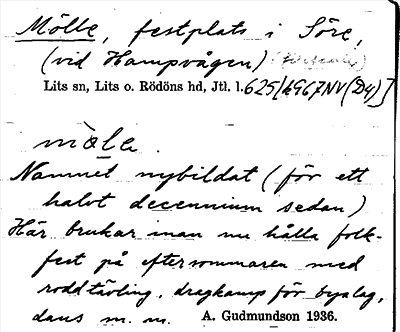 Mölle, festplats i Söre,
(vid Hampvågen)
Lits sn, Lits o. Rödöns hd, Jtl. l.
mòla.
Namnet nybildat (för ett
halvt decennium sedan)
Här brukar man nu hålla folk-
fest på eftersommaren med
roddtävling, dragkamp för byalag,
dans m. m. A. Gudmundson 1936.